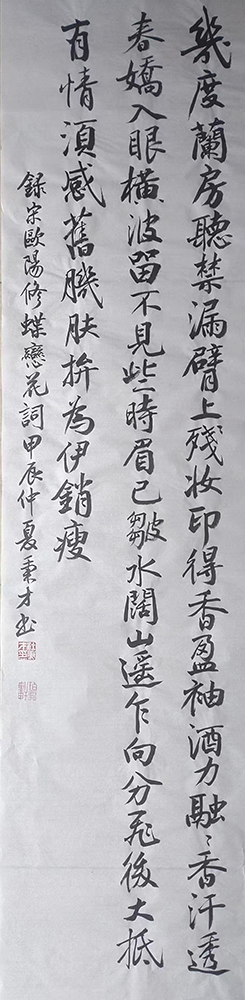 幾度蘭房聽禁漏臂上殘妝印得香盈袖酒力融〻香汗透
春嬌入眼橫波溜不見些時眉已皺水闊山遙乍向分飛後大抵
有情須感舊肌膚拚為伊銷瘦
錄宋歐陽修蝶戀花詞甲辰仲夏秉才書